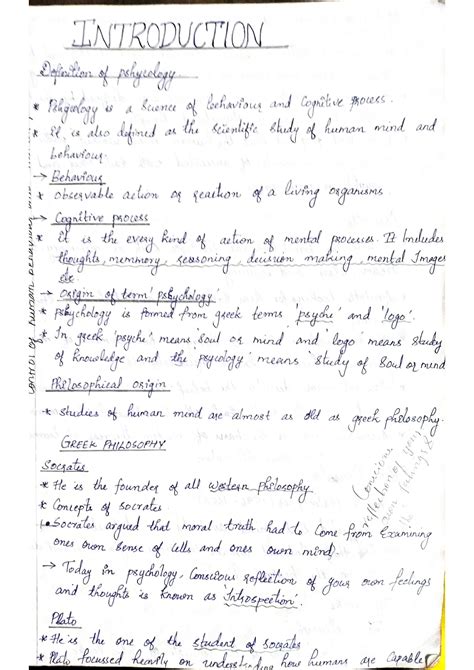 INTRODUCTION
Definition of pshycology
* Pshycology is a Science of behaviour and Cognitive process.
* It is also defined as the scientific study of human mind and
behaviour.
→ Behaviour
* Observable action or reaction of a living organisms
→ Cognitive process
* It is the every kind of action of mental processes. It Includes
thoughts, memmory, reasoning, decision making, mental Images
etc
→ Origin of term 'pshychology'
* pshychology is formed from greek terms 'psyche' and 'logo'.
* In greek 'psyche' means soul or mind and logo means study
of knowledge and the psycology means 'study of Soul or mind
Philosophical origin
* studies of human mind are almost as old as greek philosophy.
GREEK PHILOSOPHY
Socrates
* He is the founder of all western philosophy
* Concepts of socrates
1. Socrates argued that moral truth had to Come from Examining
ones own sense of cells and ones own mind.
→ Today in psychology, Conscious reflection of your own feelings
and thoughts is known as 'Introspection'.
Plato
* He is the one of the student of socrates
* Plato focussed heavily on understanding how humans are capable
control of human behaviour and
Conscious
reflection of your
own feelings &